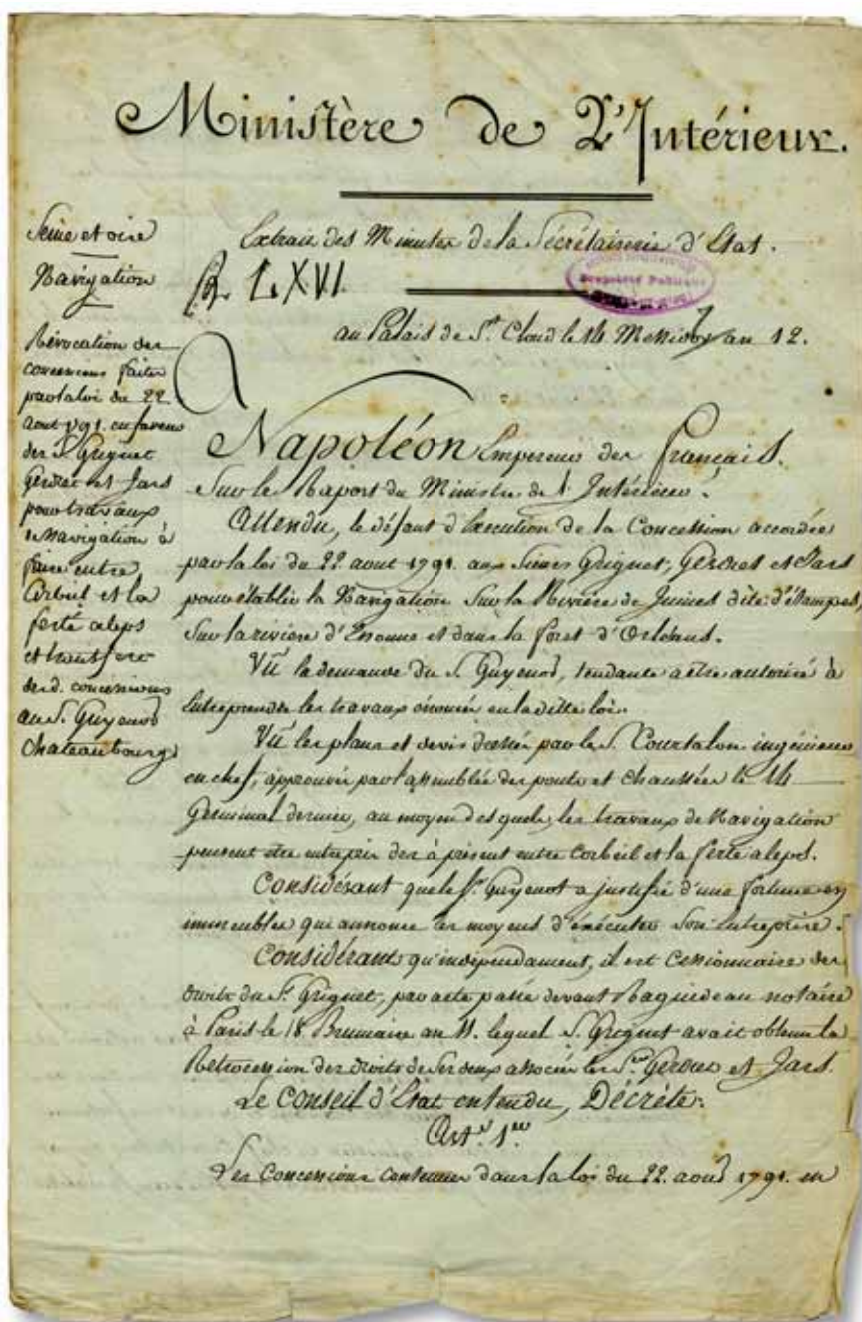 Ministère de L'Intérieur.
Extrait des Minutes de la Secrétairerie d'Etat.
LXVI.
au Palais de St. Cloud le 14 Messidor an 12.
Seine et oise
Navigation
Révocation des
concessions faites
par la loi du 22
aout 1791. en faveur
des S. Grignet
Gerdret et Jars
pour travaux
de navigation à
faire entre
Corbeil et la
ferté aleps
et transfert
des d. concessions
au S. Guyenot
Chateaubourg
Napoléon Empereur des français.
Sur le Raport du Ministre de l'Intérieur,
Attendu, le défaut d'Execution de la Concession accordée
par la loi du 22 aout 1791. aux Sieurs Grignet, Gerdret et Jars
pour établir la Navigation Sur la Riviere de Juines dite d'étampes,
Sur la riviere d'Essonne et dans la foret d'Orléans.
Vû la demande du S. Guyenot, tendante a etre autorisé à
Entreprendre les travaux énoncés en la ditte loi.
Vû les plans et devis dressés par le S. Courtalon ingénieur
en chef, approuvés par l'assemblée des ponts et chaussées le 14
Germinal dernier, au moyen desquels, les travaux de Navigation
peuvent etre entrepris des à présent entre Corbeil et la ferté aleps.
Considérant que le Sr. Guyenot a justifié d'une fortune en
immeubles qui annonce les moyens d'éxécuter Son Entreprise.
Considérant qu'independament, il est Cessionnaire des
Droits du Sr. Grignet, par acte passé devant Raguideau notaire
à Paris le 18 Brumaire an 11. lequel S. Grignet avait obtenu la
Retrocession des Droits de Ses deux associés les Srs. Gerdret et Jars.
Le Conseil d'Etat entendu, Décrète.
Art. 1er.
Les Concessions contenues dans la loi du 22. aout 1791. en